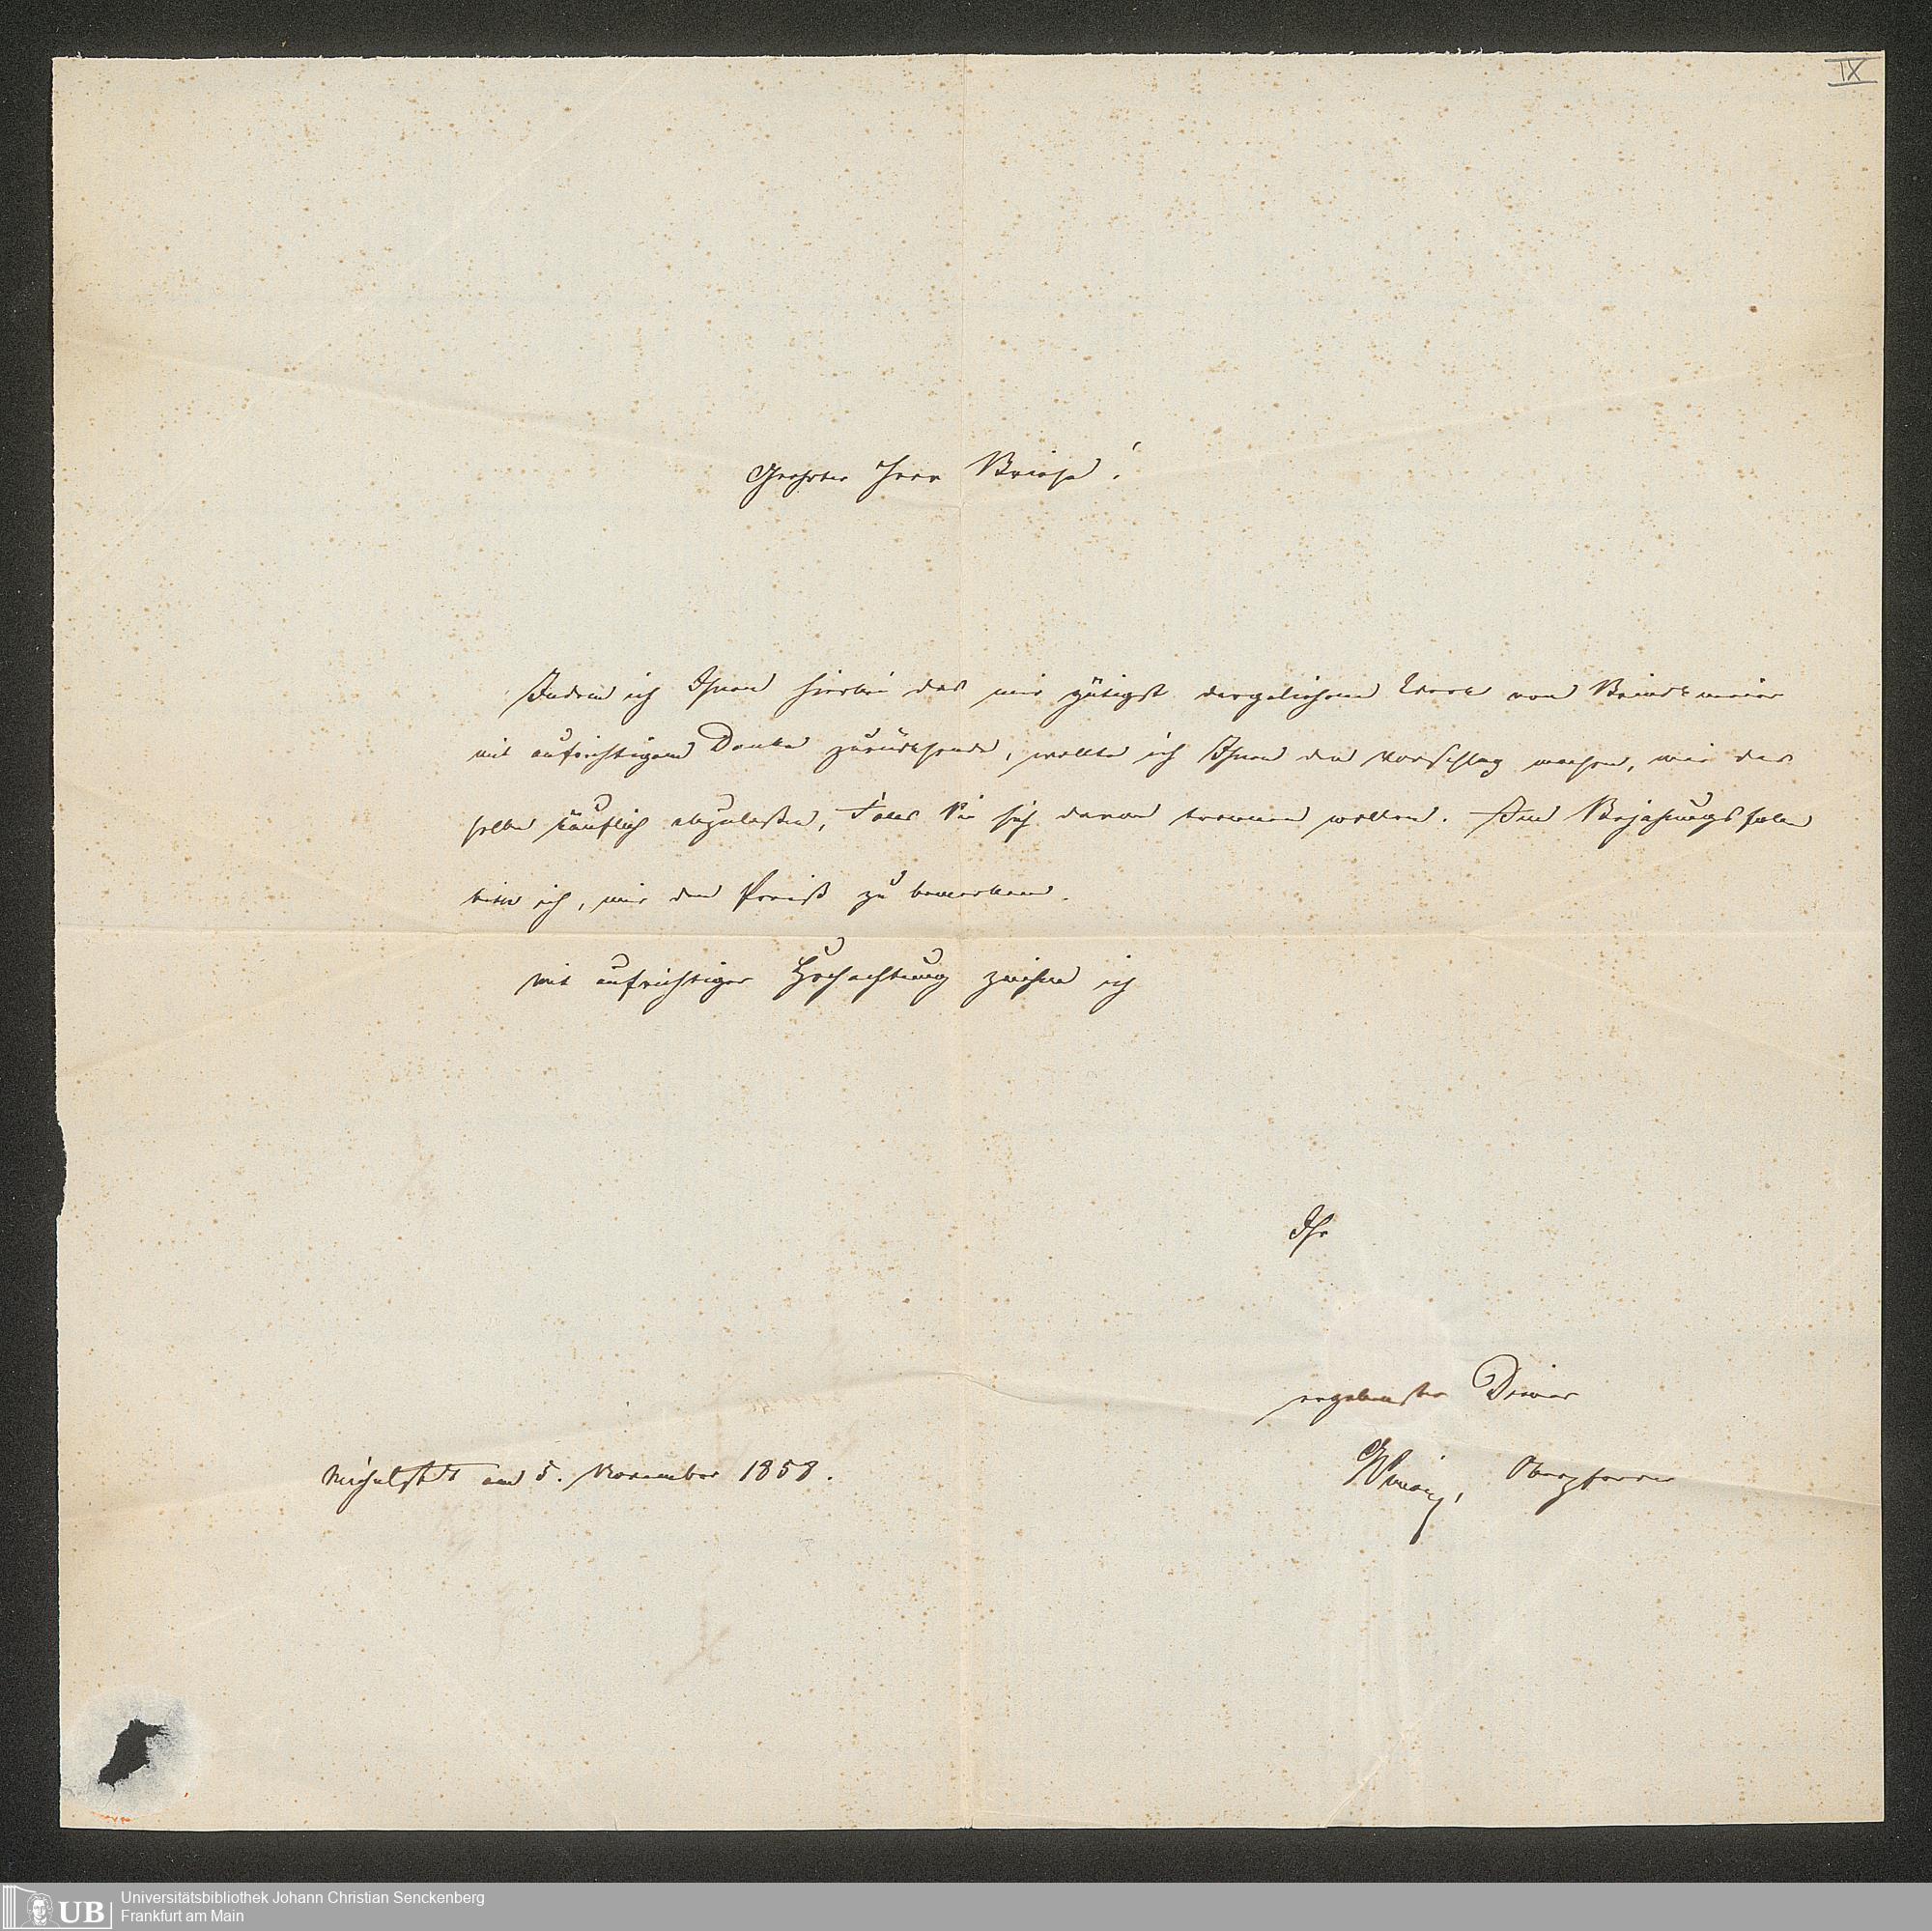 IX
Geehrter Herr
Indem ich Ihnen hierbei das mir gütigst dargeliehene Werk von
mit aufrichtigem Danke zurücksende, wollte ich Ihnen den Vorschlag machen, mir das
selbe käuflich abzulaßen, falls Sie sich davon trennen wollen. Im Bejahungsfalle
bitte ich, mir den Preiß zu bemerken.
Mit aufrichtiger Hochachtung zeichne ich
Ihr
ergebenster Diener
Michelstadt am 5. November 1858.
Oberpfarrer
UB Universitätsbibliothek Johann Christian Senckenberg
Frankfurt am Main